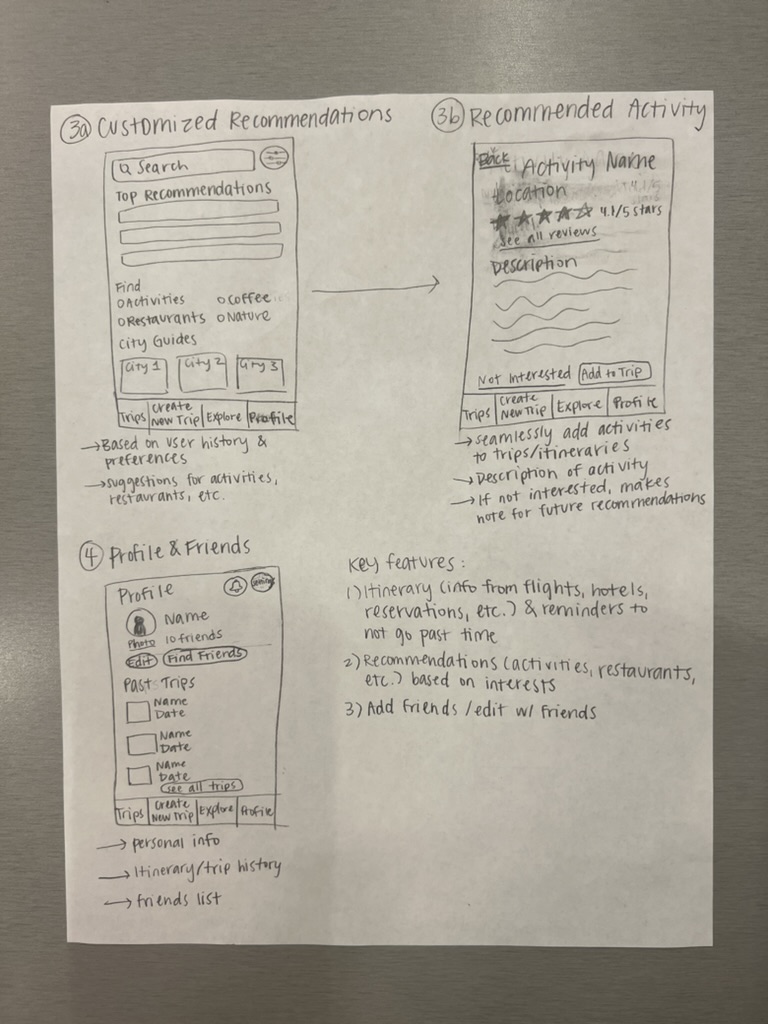 3a Customized Recommendations
Search
Top Recommendations
Find
Activities Coffee
Restaurants Nature
City Guides
City 1 City 2 City 3
Trips Create New Trip Explore Profile
→ Based on user history &
preferences
→ suggestions for activities,
restaurants, etc.
3b Recommended Activity
Back Activity Name
Location
4.1/5 stars
see all reviews
Description
Not Interested Add to Trip
Trips Create New Trip Explore Profile
→ seamlessly add activities
to trips/itineraries
→ Description of activity
→ If not interested, makes
note for future recommendations
4 Profile & Friends
Profile
Name
Photo 10 friends
Edit Find Friends
Past Trips
Name
Date
Name
Date
Name
Date
see all trips
Trips Create New Trip Explore Profile
→ personal info
→ Itinerary/trip history
→ friends list
Key features:
1) Itinerary (info from flights, hotels,
reservations, etc.) & reminders to
not go past time
2) Recommendations (activities, restaurants,
etc.) based on interests
3) Add friends / edit w/ friends